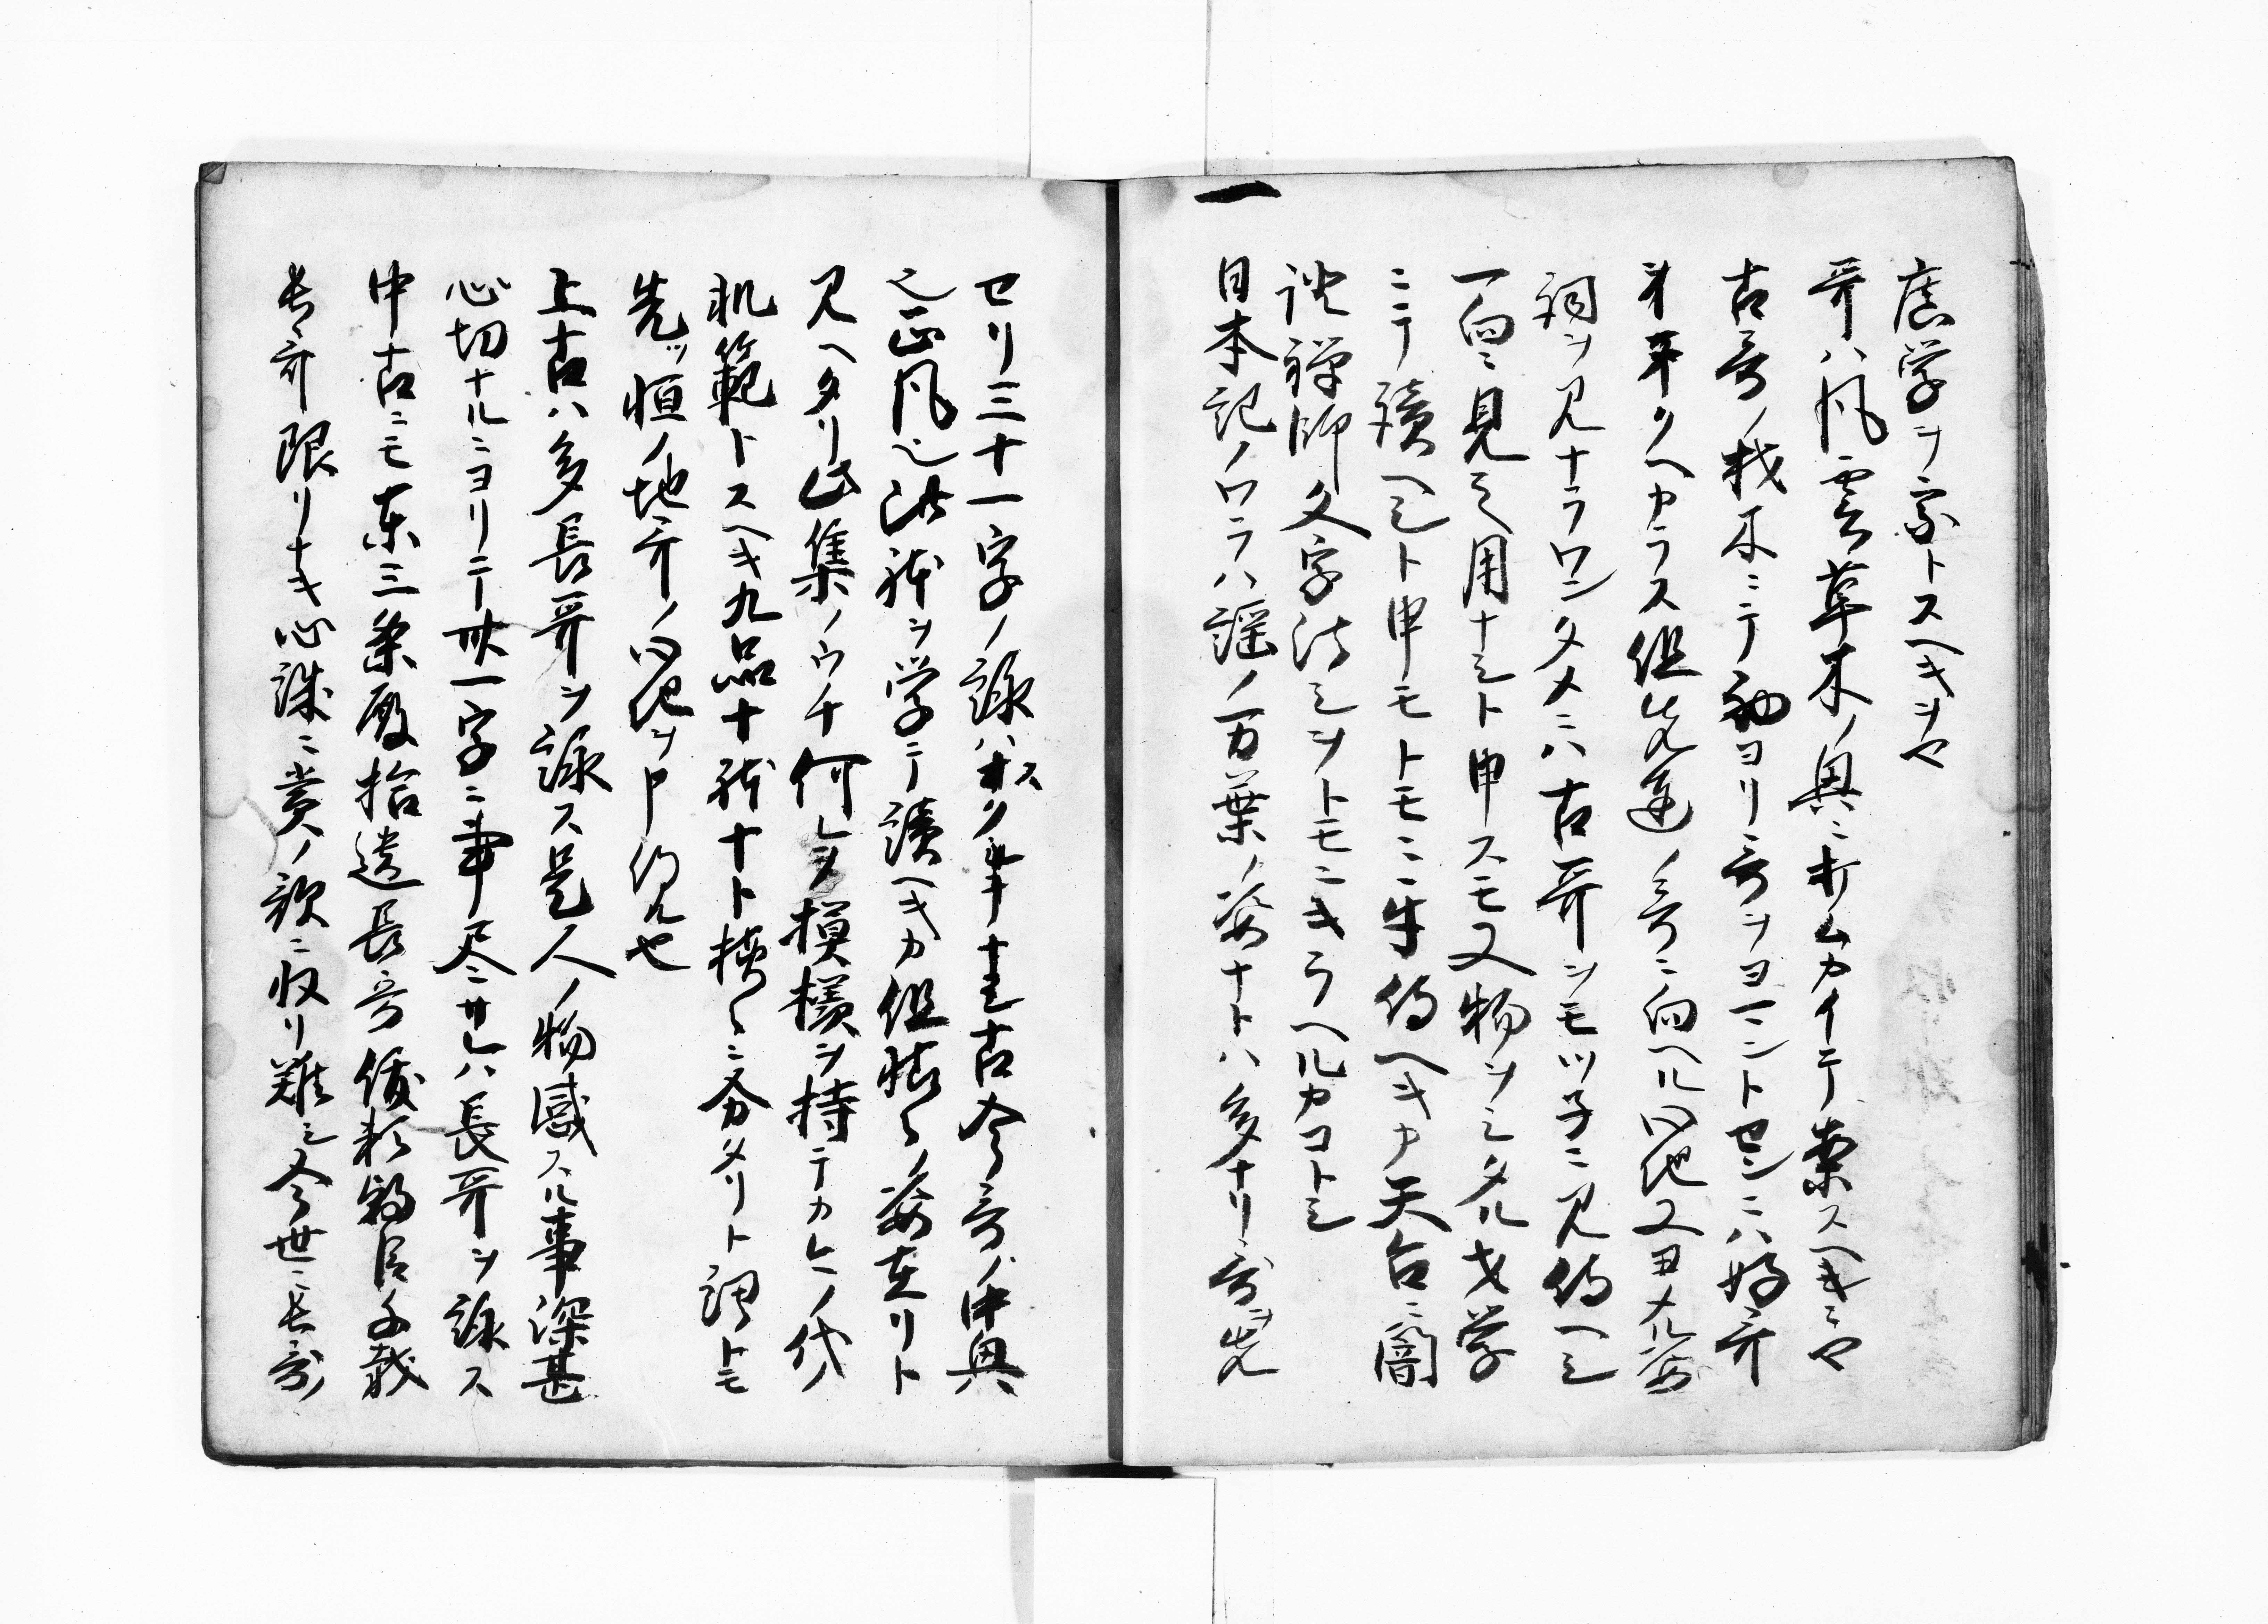 学ヲ宗トスヘキヲヤ
哥ハ風雲草木ノ興ニオムカイテ案スヘキニヤ
古哥ノ枝木ニテ初ヨリ哥ヲヨマントセンニハ好哥
来ルヘカラス但先達ノ哥ニ向ヘル心地又ヨメル姿
詞ヲ見ナラワンタメニハ古哥ヲモツ子ニ見侍ヘシ
一向ニ見之用ナシト申スモ又物ヲシタル才学
ニテ読ヘシト申モトモニ侍ヘキカ天台ニ闇
證禅師文字法シヲトモニキラヘルカコトシ
一日本記ノウラハ謡ノ万葉ノ姿ナトハ多ナリ哥ヲ先
セリ三十一字ノ詠ハスクナキナシ古今哥ノ中興
之正風也此躰ヲ学テ読ヘキカ但様々ノ姿在リト
見ヘタリ此集ノウチ何レヲ損様ヲ持テカヒノ代ノ
軌範トスヘキ九品十躰ナト様々ニ分タリト謂トモ
先ツ恒ノ地哥ノ心地ヲ申侍ル也
上古ハ多長哥ヲ詠ス是人ノ物感スル事深甚
心切ナルニヨリテ卅一字ニ事尽ニサレハ長哥ヲ詠ス
中古ニモ東三条殿拾遺長哥俊頼朝臣千載
長哥限リナキ心誠ニ黄ノ歌ニ収リ難シ今世ニ長哥ノ